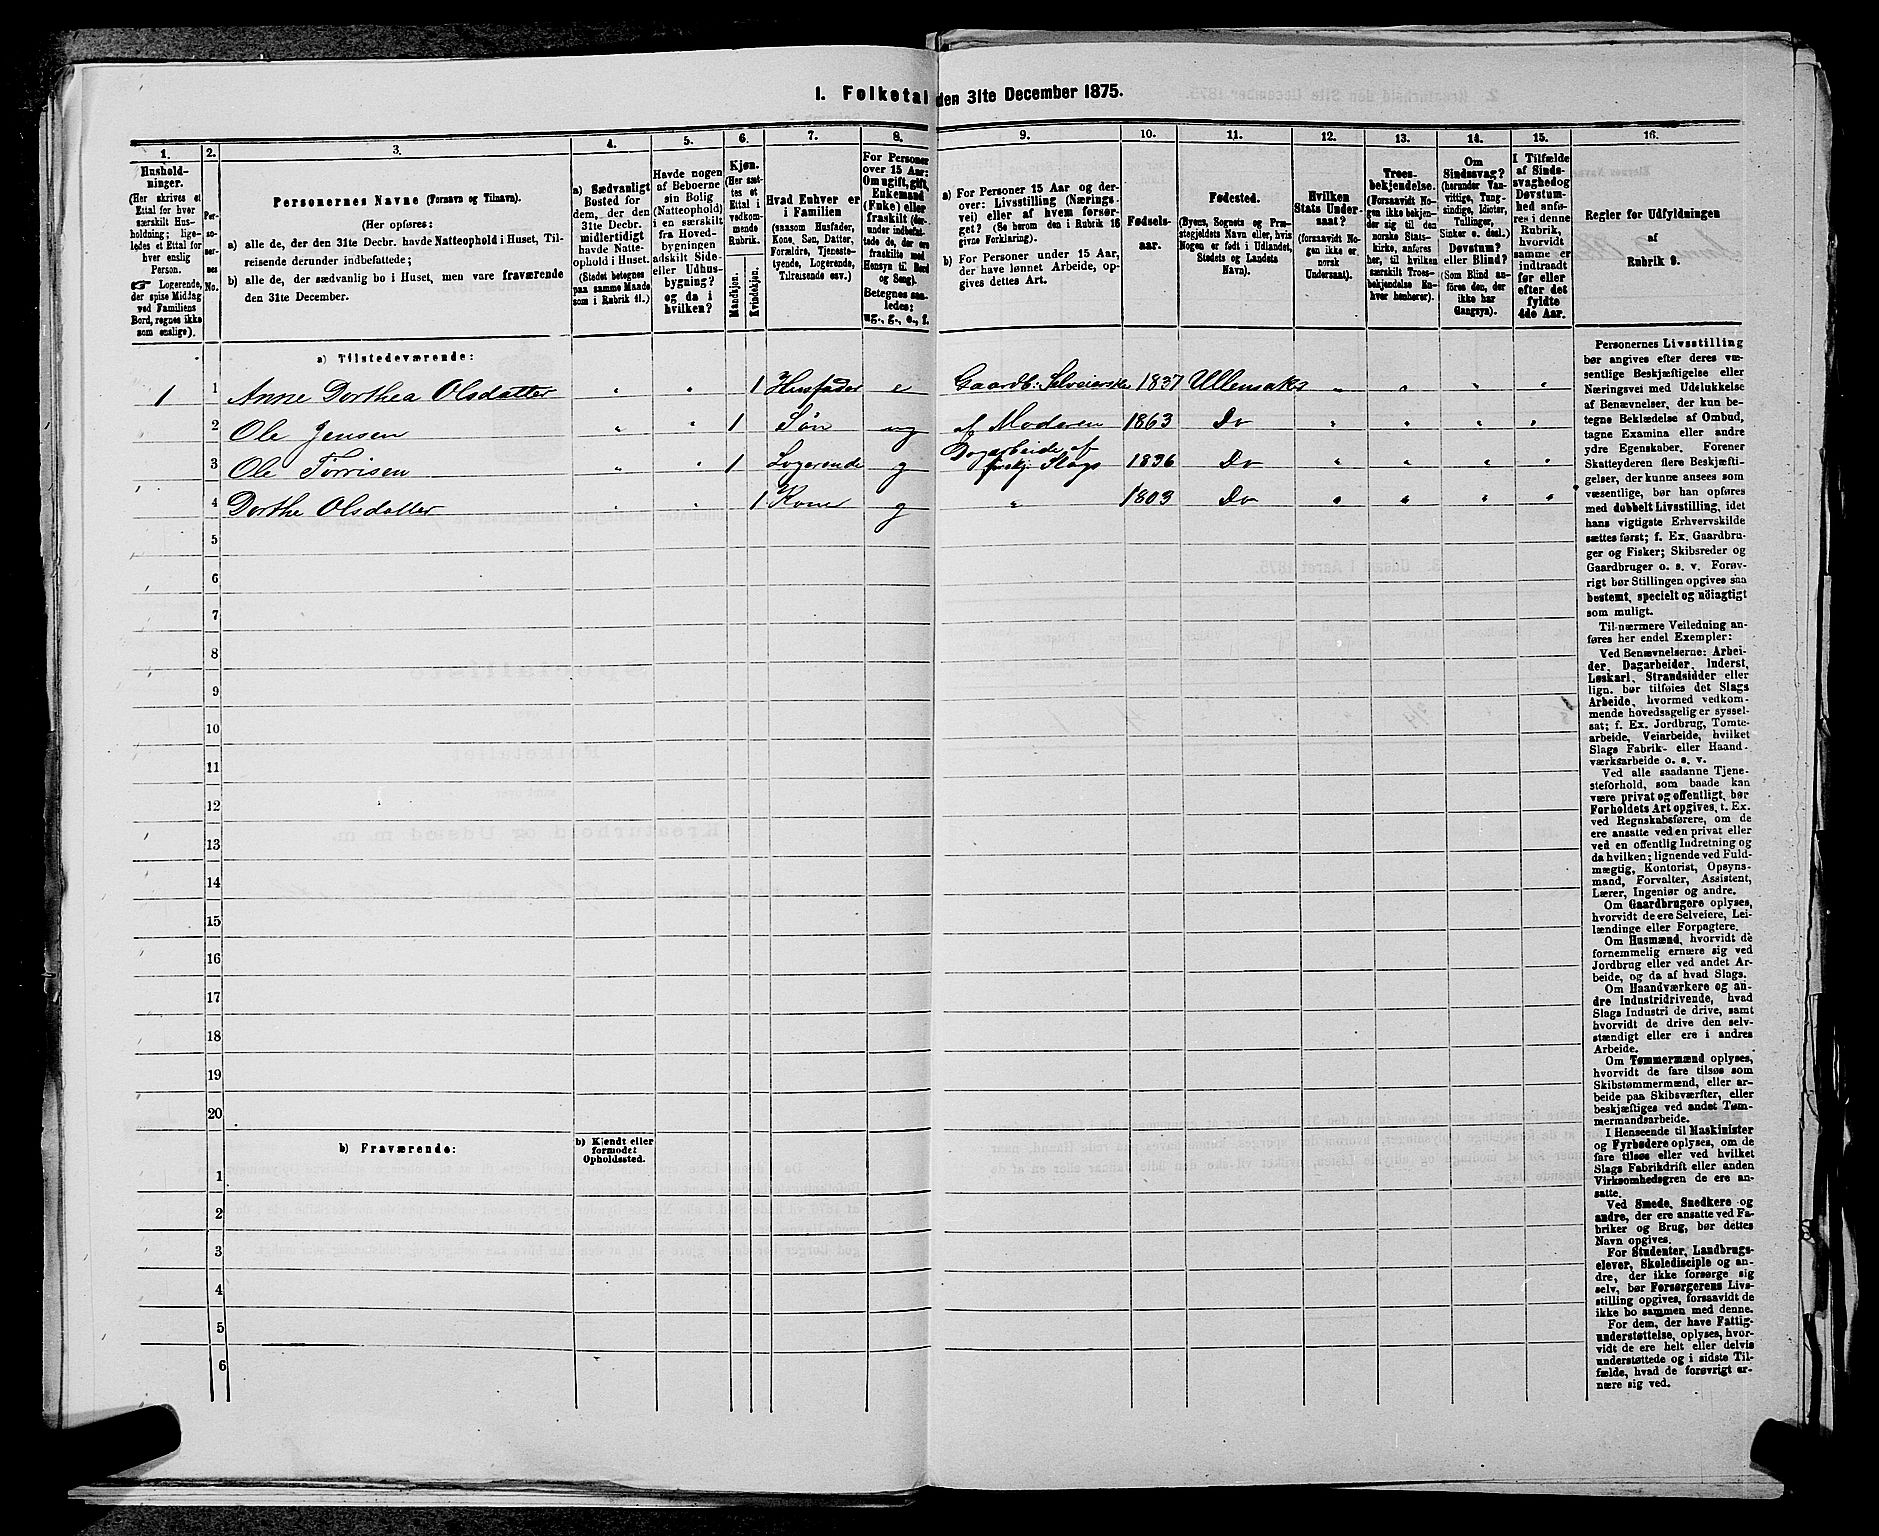 1. Folketal den 31te December 1875.
1. 2. 3. 4. 5. 6. 7. 8. 9. 10. 11. 12. 13. 14. 15. 16.
Hushold-
ninger.
(Her skrives et
Ettal for hver
særskilt Hus-
holdning; lige-
ledes et Ettal for
hver enslig
Person.
☞ Logerende,
der spise Middag
ved Familiens
Bord, regnes ikke
som enslige).
Per-
so-
ner-
nes
No.
Personernes Navne (Fornavn og Tilnavn).
(Her opføres:
a) alle de, der den 31te Decbr. havde Natteophold i Huset, Til-
reisende derunder indbefattede;
b) alle de, der sædvanlig bo i Huset, men vare fraværende
den 31te December.
a) Sædvanligt
Bosted for
dem, der den
31te Decbr.
midlertidigt
havde Natte-
ophold i Huset.
(Stedet betegnes
paa samme Maade
som i Rubrik 11.)
Havde nogen
af Beboerne
sin Bolig
(Natteophold)
i en særskilt
fra Hoved-
bygningen
adskilt Side-
eller Udhus-
bygning?
og da i
hvilken?
Kjøn.
(Her sæt-
tes et
Ettal i
vedkom-
mende
Rubrik.
Mandkjøn.
Kvindekjøn.
Hvad Enhver er
i Familien
(saasom Husfader,
Kone, Søn, Datter,
Forældre, Tjeneste-
tyende, Logerende,
Tilreisende osv.)
For Personer
over 15 Aar:
Om ugift, gift,
Enkemand
(Enke) eller
fraskilt (der-
under indbefat-
tede de, der ere
fraskilte med
Hensyn til Bord
og Seng).
Betegnes saa-
ledes:
ug., g., e., f.
a) For Personer 15 Aar og der-
over: Livsstilling (Nærings-
vei) eller af hvem forsør-
get? (Se herom den i Rubrik 16
givne Forklaring).
b) For Personer under 15 Aar,
der have lønnet Arbeide, op-
gives dettes Art.
Fødsels-
aar.
Fødested.
(Byens, Sognets og Præ-
stegjeldets Navn eller, hvis
Nogen er født i Udlandet,
Stedets og Landets
Navn).
Hvilken
Stats Under-
saat?
(forsaavidt No-
gen ikke er
norsk
Undersaat).
Troes-
bekjendelse.
(Forsaavidt No-
gen ikke bekjen-
der sig til den
norske Stats-
kirke, anføres
her, til hvilken
særskilt Troes-
bekjendelse En-
hver henhører).
Om
Sindssvag?
(herunder Van-
vittige, Tung-
sindige, Idioter,
Tullinger,
Sinker o. desl.)
Døvstum?
eller Blind?
(Som Blind an-
føres den, der
ikke har
Gangsyn).
I Tilfælde
af Sinds-
svaghed og
Døvstum-
hed anfø-
res i denne
Rubrik,
hvorvidt
samme er
indtraadt
før eller
efter det
fyldte
4de Aar.
Regler for Udfyldningen
af
Rubrik 9.
a) Tilstedeværende:
1 1 Anne Dorthea Olsdatter " " 1 Husfader e Gaardb. Selveierske 1837 Ullensaker " " " "
2 Ole Jensen " " 1 Søn ug af Moderen 1863 Do " " " "
3 Ole Torrisen " " 1 Logerende g Dagarbeide af
forskj. Slags 1836 Do " " " "
4 Dorthe Olsdatter " " 1 Kone g " 1803 Do " " " "
5
6
7
8
9
10
11
12
13
14
15
16
17
18
19
20
b) Fraværende:
b) Kjendt eller
formodet
Opholdssted.
1
2
3
4
5
6
Personernes Livsstilling
bør angives efter deres væ-
sentlige Beskjæftigelse eller
Næringsvei med Udelukkelse
af Benævnelser, der kun be-
tegne Beklædelse af Ombud,
tagne Examina eller andre
ydre Egenskaber. Forener
Skatteyderen flere Beskjæfti-
gelser, der kunne ansees som
væsentlige, bør han opføres
med dobbelt Livsstilling, idet
hans vigtigste Erhvervskilde
sættes først; f. Ex. Gaardbru-
ger og Fisker; Skibsreder og
Gaardbruger o. s. v. Forøv-
rigt bør Stillingen opgives saa
bestemt, specielt og nöiagtigt
som muligt.
Til nærmere Veiledning an-
føres her endel Exempler:
Ved Benævnelserne: Arbei-
der, Dagarbeider, Inderst,
Løskarl, Strandsidder eller
lign. bør tilføies det Slags
Arbeide, hvormed vedkom-
mende hovedsagelig er syssel-
sat; f. Ex. Jordbrug, Tomte-
arbeide, Veiarbeide, hvilket
Slags Fabrik- eller Haand-
værksarbeide o. s. v.
Ved alle saadanne Tjene-
steforhold, som baade kan
være privat og offentligt, bør
Forholdets Art opgives, t. Ex.
ved Regnskabsførere, om de
ere ansatte ved en privat eller
ved en offentlig Indretning og
da hvilken; lignende ved Fuld-
mægtig, Kontorist, Opsyns-
mand, Forvalter, Assistent,
Lærer, Ingeniør og andre.
Om Gaardbrugere oplyses,
hvorvidt de ere Selveiere, Lei-
lændinge eller Forpagtere.
Om Husmænd, hvorvidt de
fornemmelig ernære sig ved
Jordbrug eller ved andet Ar-
beide, og da af hvad Slags.
Om Haandværkere og an-
dre Industridrivende, hvad
Slags Industri de drive, samt
hvorvidt de drive den selv-
stændigt eller ere i andres
Arbeide.
Om Tømmermænd oplyses,
hvorvidt de fare tilsøs som
Skibstømmermænd, eller ar-
beide paa Skibsværfter, eller
beskjæftiges ved andet Tøm-
mermandsarbeide.
I Henseende til Maskinister
og Fyrbødere oplyses, om de
fare tilsøs eller ved hvilket
Slags Fabrikdrift eller anden
Virksomhedsgren de ere an-
satte.
Ved Smede, Snedkere og
andre, der ere ansatte ved Fa-
briker og Brug, bør dettes
Navn opgives.
For Studenter, Landbrugs-
elever, Skoledisciple og an-
dre, der ikke forsørge sig
selv, bør Forsørgerens Livs-
stilling opgives, forsaavidt de
ikke bo sammen med denne.
For dem, der have Fattig-
understøttelse, oplyses, hvor-
vidt de ere helt eller delvis
understøttede og i sidste Til-
fælde, hvad de forøvrigt er-
nære sig ved.